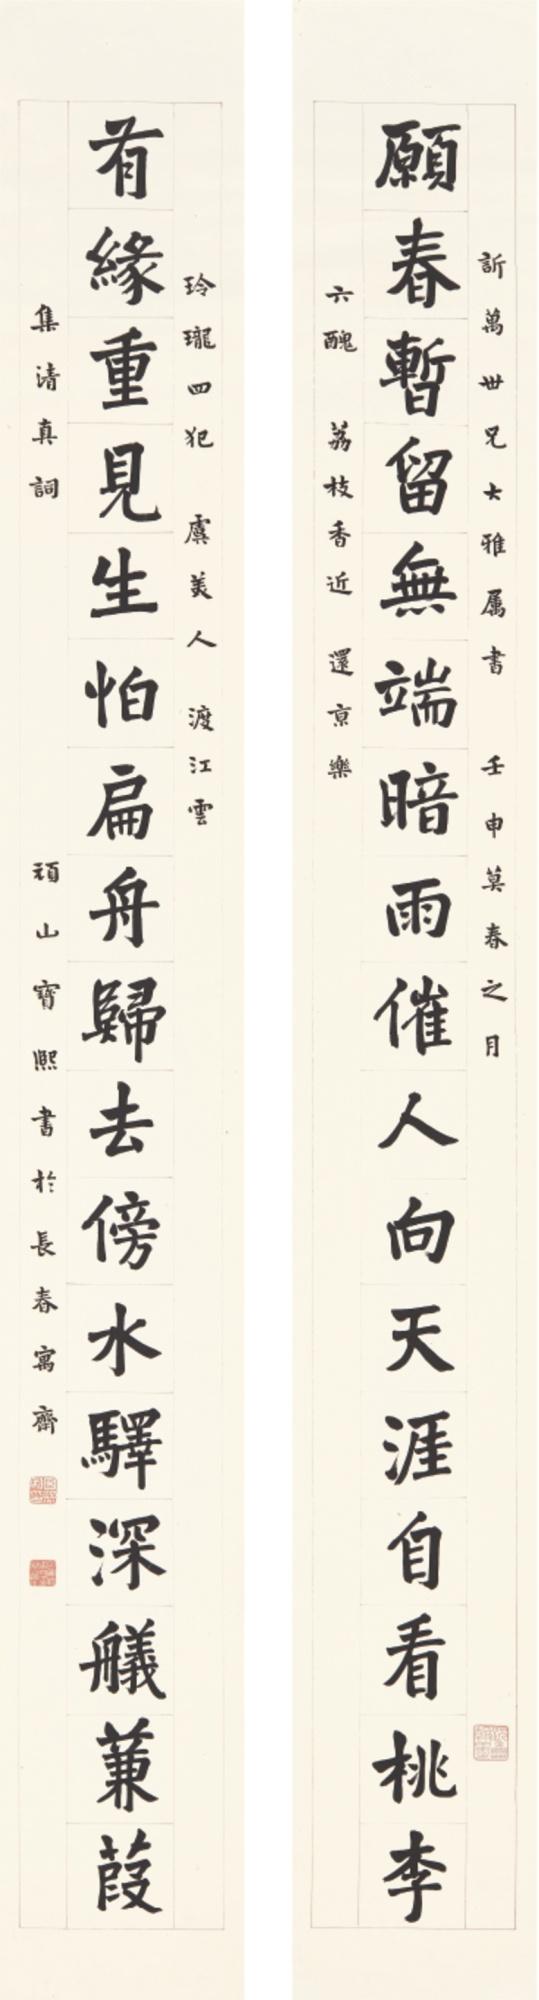 訢萬世兄大雅属書 壬申莫春之月
願春暫留無端暗雨催人向天涯自看桃李
六醜 荔枝香近 還京樂
玲瓏四犯 虞美人 渡江雲
有緣重見生怕扁舟歸去傍水驛深艤蒹葭
集清真詞 頑山寶熙書於長春寓齋